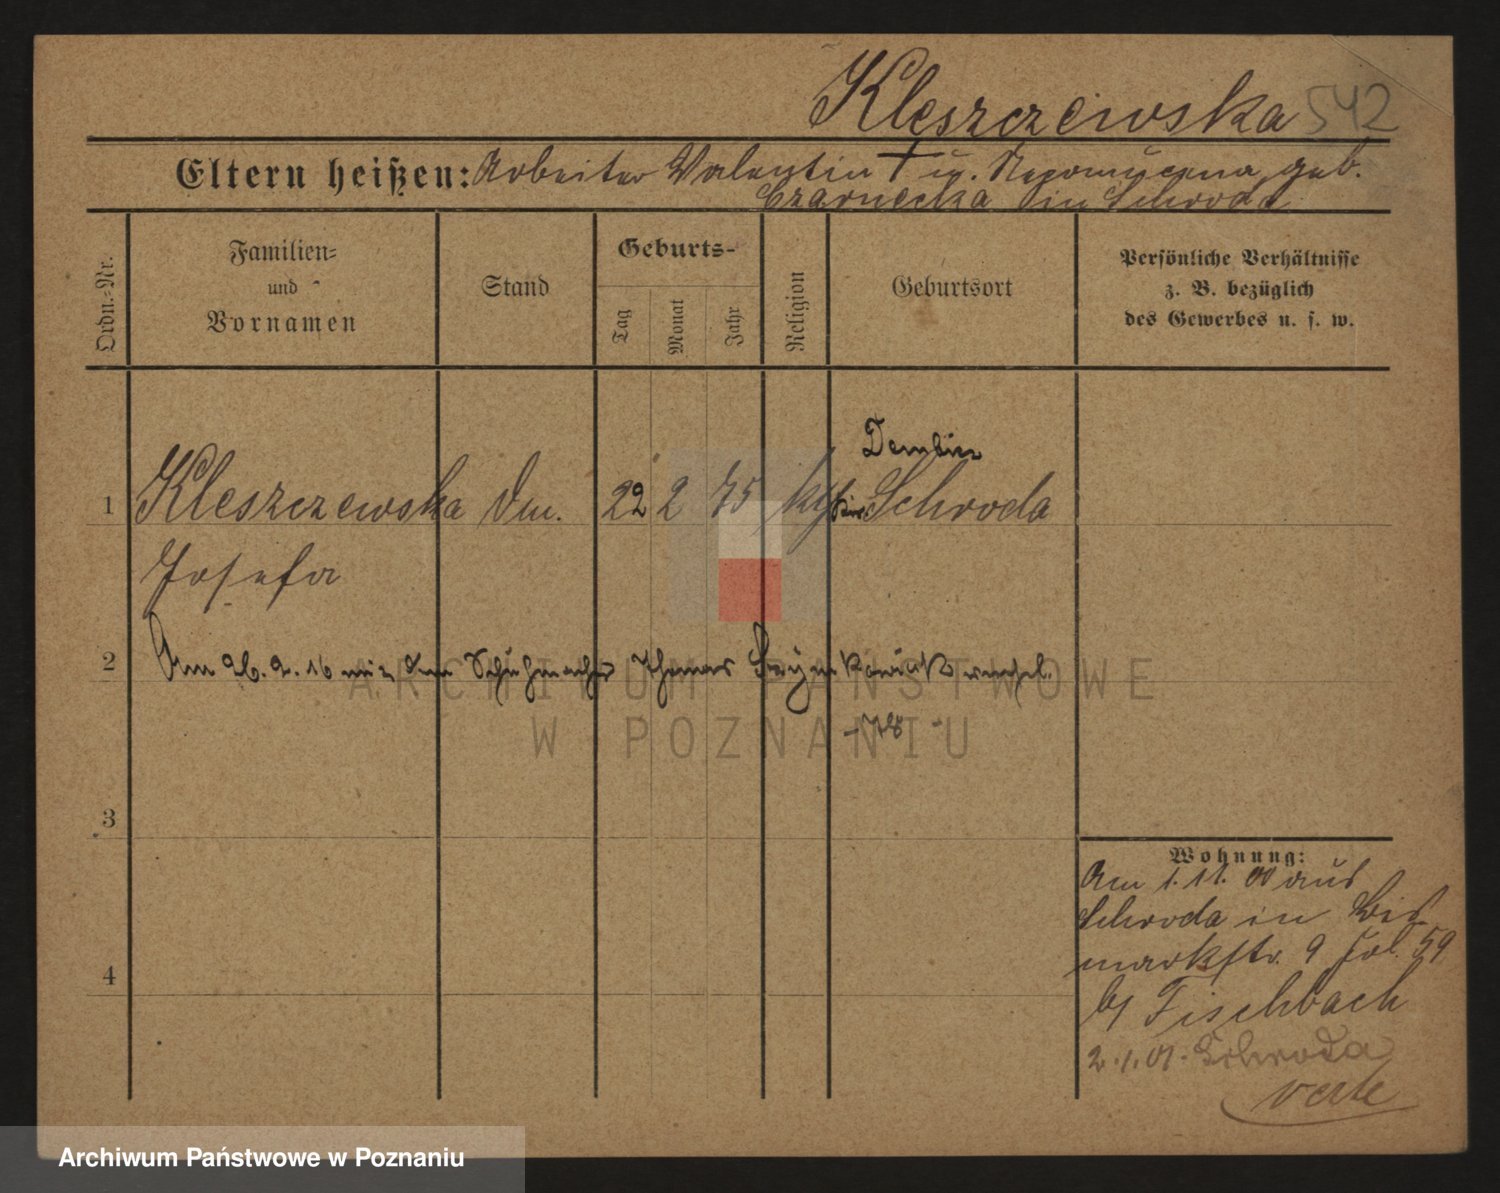 Kleszczewska 542
Eltern heißen: Arbeiter Valentin † u. Nepomucena geb.
Czarnecka in Schroda
Ordn.-Nr.
Familien-
und
Vornamen
Stand
Geburts-
Tag
Monat
Jahr
Religion
Geburtsort
Persönliche Verhältnisse
z. B. bezüglich
des Gewerbes u. s. w.
Dembicz
1 Kleszczewska 22 2 75 kth Krs Schroda
Josefa
2 Am 26. 2. 16 mit dem Schuhmacher Thomas verehel.
ARCHIWUM PAŃSTWOWE
W POZNANIU
3
4
Wohnung:
Am 1. 11. 00 aus
Schroda in Bis
markstr. 9 Jol. 59
b/ Fischbach
2. 1. 01. Schroda
verte
Archiwum Państwowe w Poznaniu